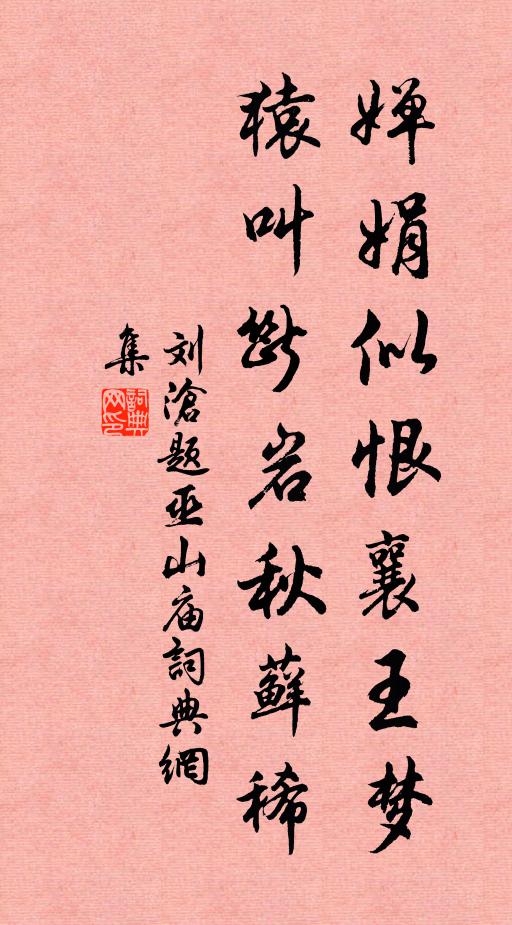 婵娟似恨襄王梦
猿叫断岩秋藓稀
刘沧题巫山庙詞典網
集
詞典
网印